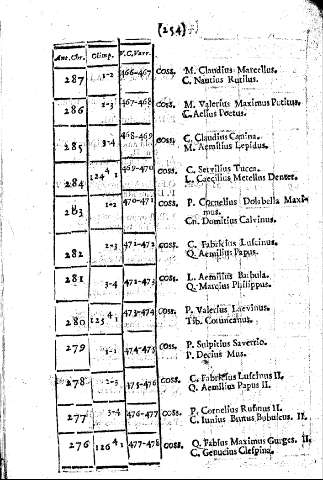 (254)
Ant. Chr. Olimp. V.C. Varr.
287 1-2 466-467 COSS. M. Claudius Marcellus.
C. Nautius Rutilus.
286 2-3 467-468 COSS. M. Valerius Maximus Potitus.
C. Aelius Poetus.
285 3-4 468-469 COSS. C. Claudius Canina.
M. Aemilius Lepidus.
284 124 4 1 469-470 COSS. C. Servilius Tucca.
L. Caecilius Metellus Denter.
283 1-2 470-471 COSS. P. Cornelius Dolabella Maxi-
mus.
Cn. Domitius Calvinus.
282 2-3 471-472 COSS. C. Fabricius Luscinus.
Q. Aemilius Papus.
281 3-4 472-473 COSS. L. Aemilius Barbula.
Q. Marcius Philippus.
280 125 4 1 473-474 COSS. P. Valerius Laevinus.
Tib. Coruncanus.
279 1-2 474-475 COSS. P. Sulpitius Saverrio.
P. Decius Mus.
278 2-3 475-476 COSS. C. Fabricius Luscinus II.
Q. Aemilius Papus II.
277 3-4 476-477 COSS. P. Cornelius Rufinus II.
C. Iunius Brutus Bubulcus. II.
276 126 4 1 477-478 COSS. Q. Fabius Maximus Gurges. II.
C. Genucius Clespina.